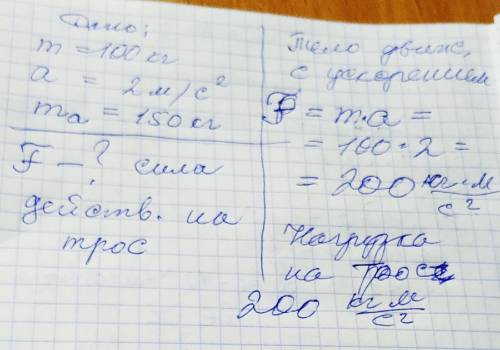 Дано:
m = 100 кг
a = 2 м/с²
mₐ = 150 кг
F - ? сила
действ. на
трос
Тело движ.
с ускорением
F = m·a =
= 100·2 =
= 200 кг·м/с²
Нагрузка
на трос
200 кг м/с²